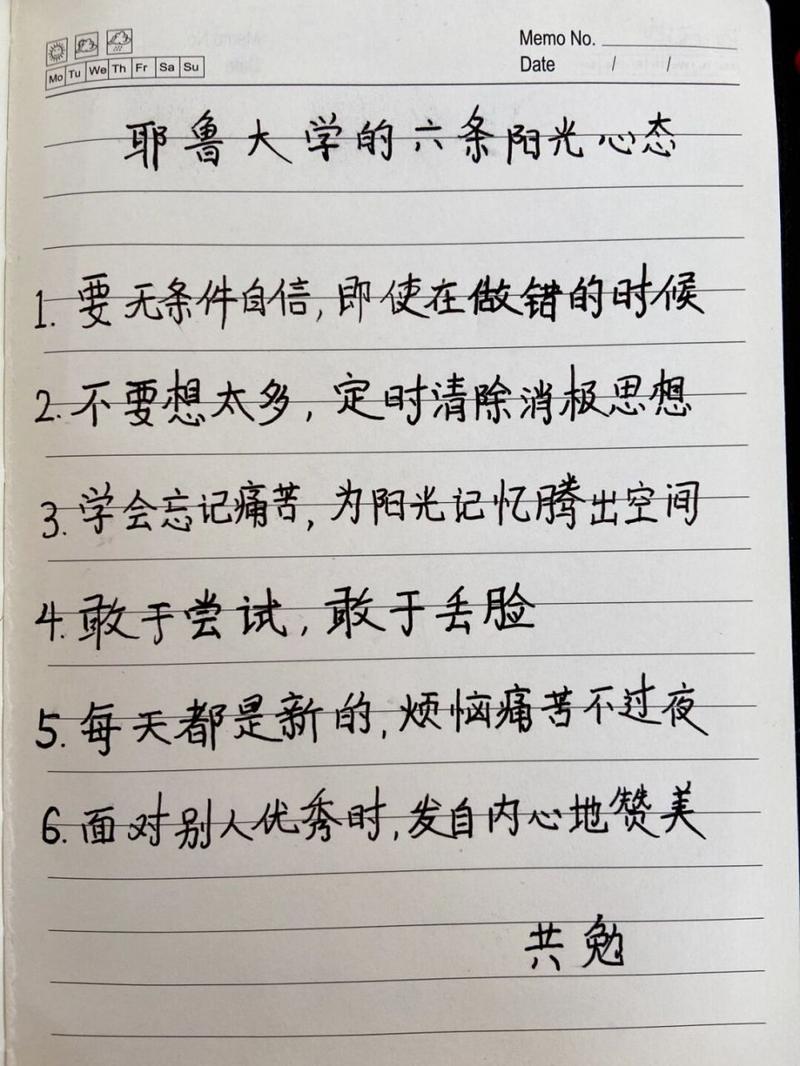 Memo No.
Mo Tu We Th Fr Sa Su
Date / /
耶鲁大学的六条阳光心态
1. 要无条件自信,即使在做错的时候
2. 不要想太多,定时清除消极思想
3. 学会忘记痛苦,为阳光记忆腾出空间
4. 敢于尝试,敢于丢脸
5. 每天都是新的,烦恼痛苦不过夜
6. 面对别人优秀时,发自内心地赞美
共勉